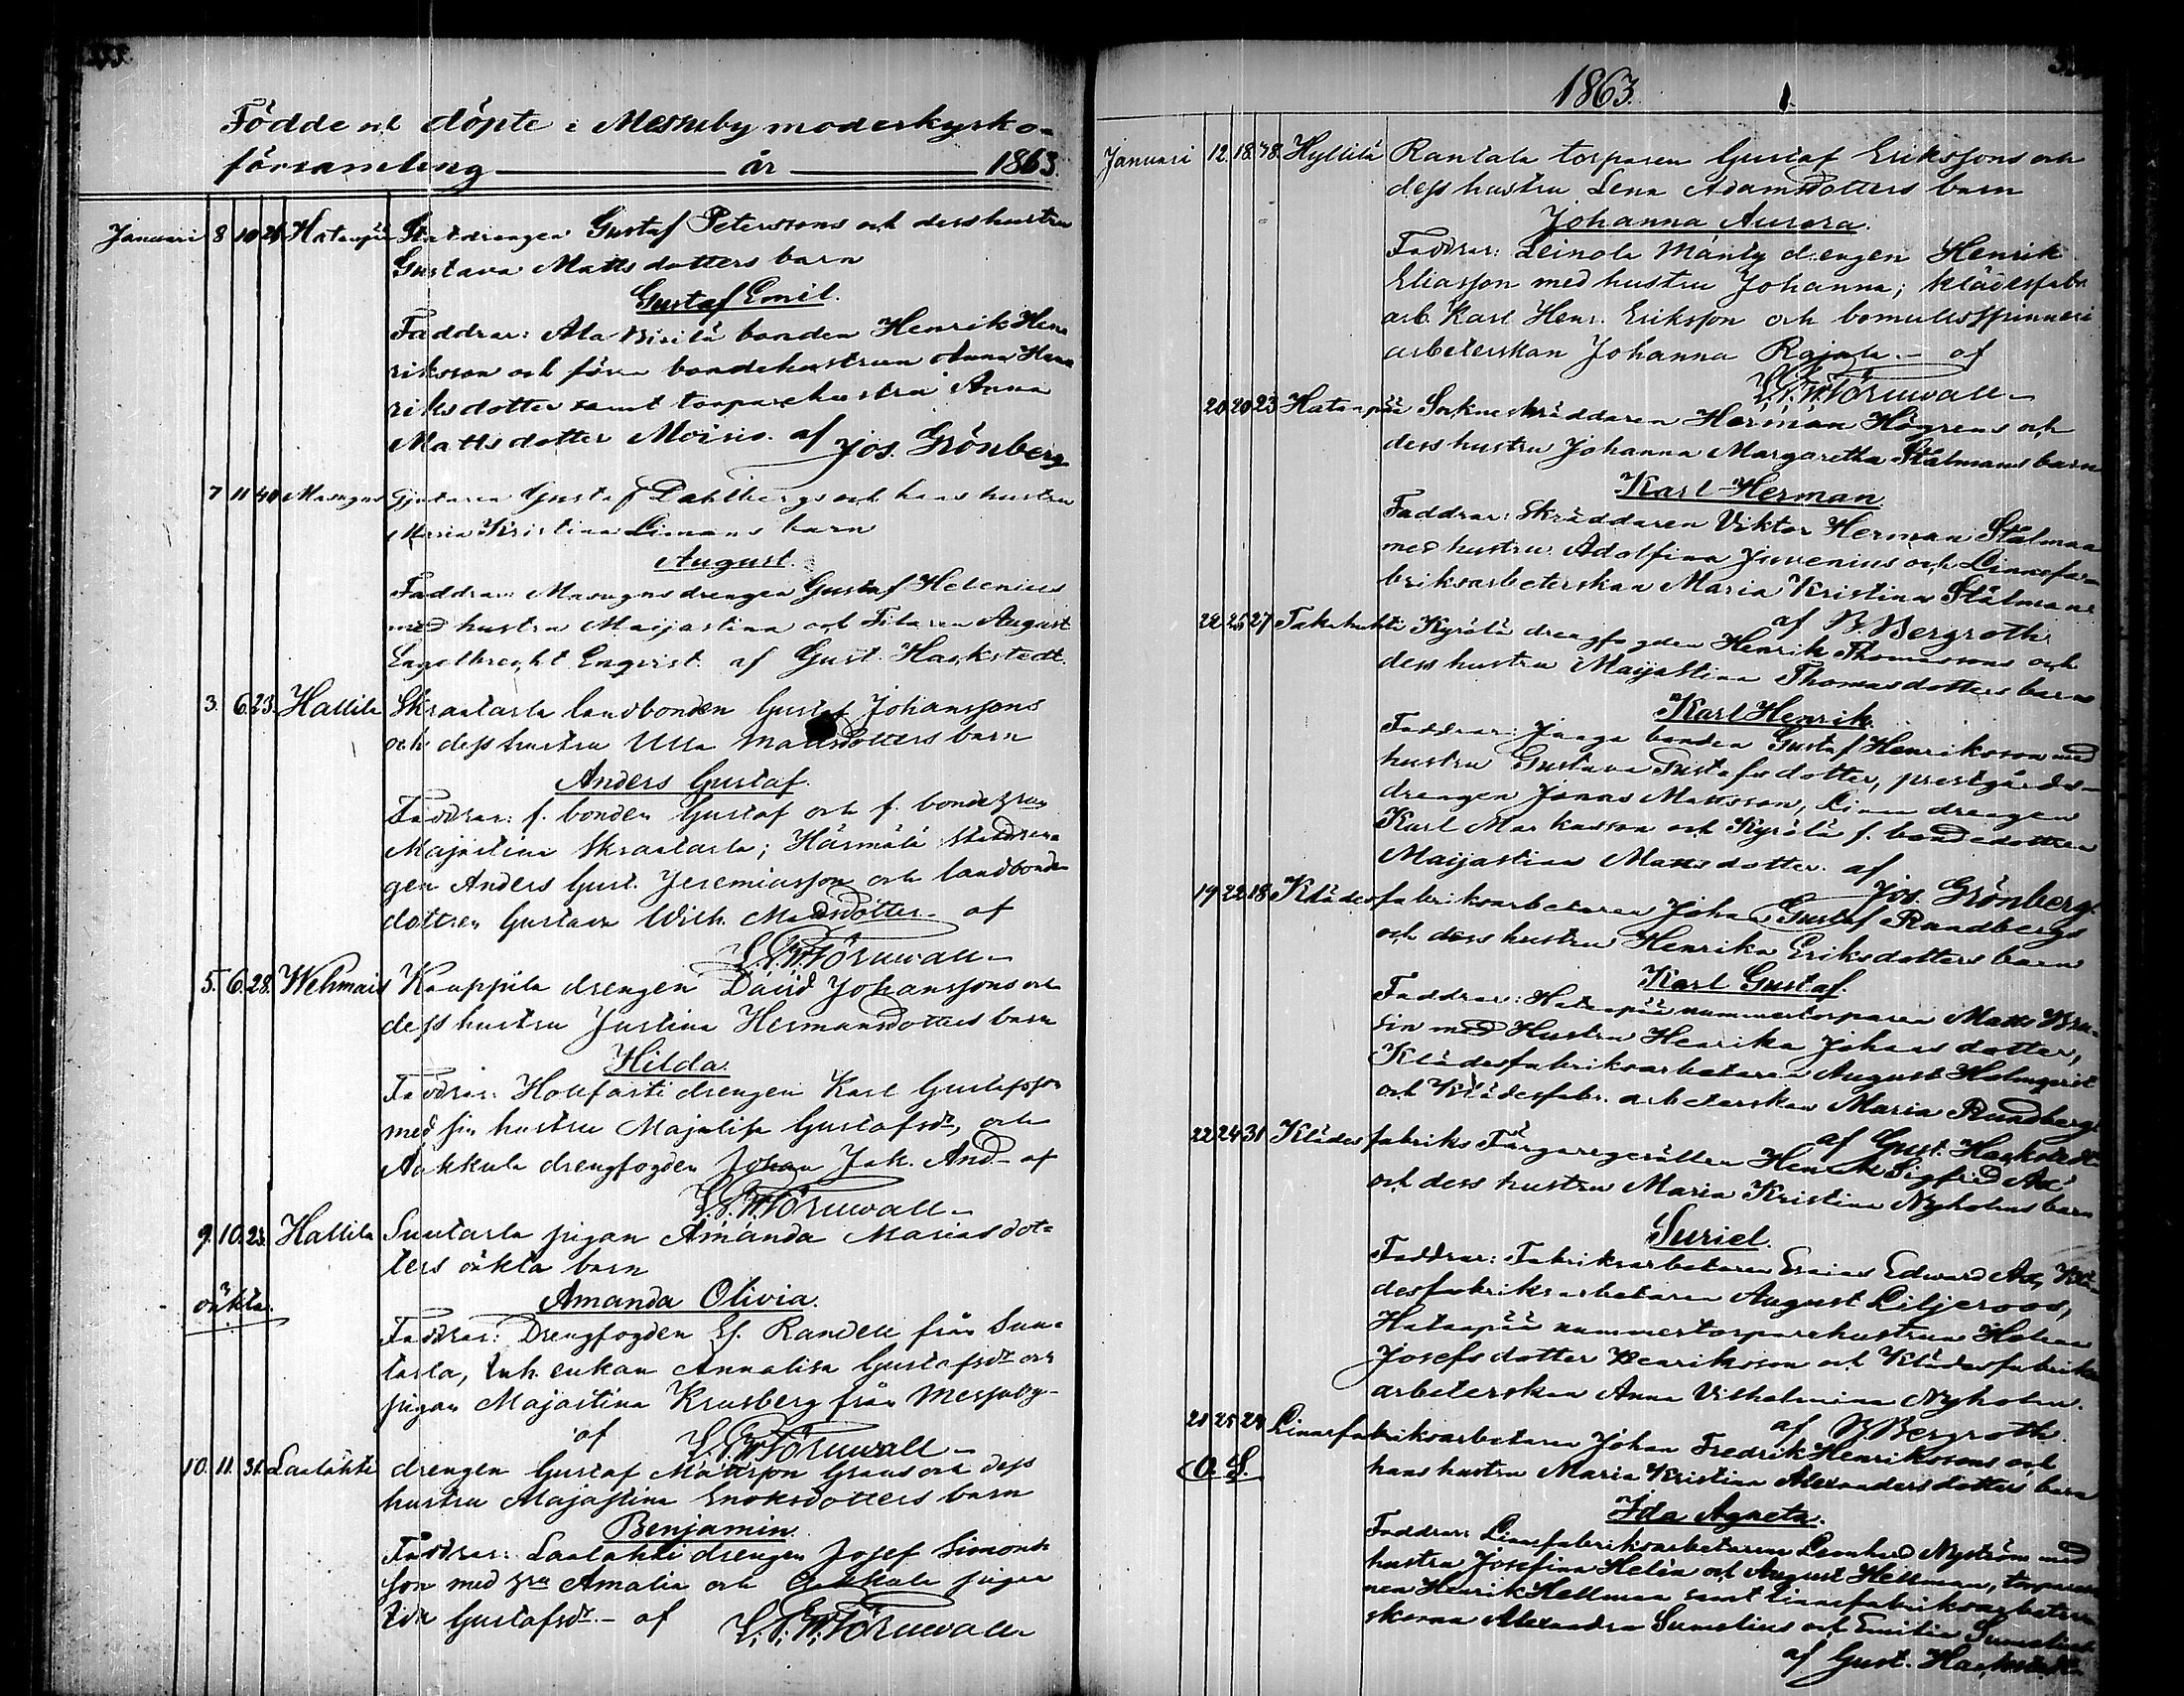 Födde och döpte i Messuby moderkyrko-
församling år 1863.
Januari 8 10 26 Hatanpää Statdrengen Gustaf Peterssons och dess hustru
Gustava Mattsdotters barn
Gustaf Emil.
Faddrar: Ala Birilä bonden Henrik Hen-
riksson och förra bondehustrun Anna Hen-
riksdotter samt torparehustru Anna
Mattsdotter Moisio. af Jos. Grönberg
7 11 40 Masugns Gjutaren Gustaf Dahlbergs och hans hustru
Maria Kristina Limans barn
August.
Faddrar: Masugnsdrengen Gustaf Helenius
med hustru Maijastina och Filaren August
Engelbrecht Enqvist. af Gust. Hackstedt.
3. 6. 23. Hallila Skraatarla landbonden Gustaf Johanssons
och dess hustru Ulla Mattsdotters barn
Anders Gustaf.
Faddrar: f. bonden Gustaf och f. bondehrun
Majastina Skraatarla; Härmälä statdren-
gen Anders Gust. Jeremiasson och landbonde
dottren Gustava Wilh. Mattsdotter. af
L.F.W. Törnwall
5. 6. 28. Wehmais Kauppila drengen David Johanssons och
dess hustru Justina Hermansdotters barn
Hilda.
Faddrar: Hollfasti drengen Karl Gustafsson
med sin hustru Majalisa Gustafsdr, och
Aakkula drengfogden Johan Jak. And. af
L.F.W. Törnwall
9. 10. 23. Hallila Suutarla pigan Amanda Mariasdot-
ters oäkta barn
oäkta.
Amanda Olivia.
Faddrar: Drengfogden Ef. Randell från Suu-
tarla, inh. enkan Annalisa Gustafsdr och
pigan Majastina Krusberg från Messuby
af L.F.W. Törnwall
10. 11. 31. Laalahti drengen Gustaf Mattsson Grans och dess
hustru Majastina Enoksdotters barn
Benjamin.
Faddrar: Laalahti drengen Josef Simons-
son med hru Amalia och Aakkula pigan
Ida Gustafsdr. af L.F.W. Törnwall
1863.
Januari 12. 18. 38. Hyllilä Rantala torparen Gustaf Erikssons och
dess hustru Lena Adamsdotters barn
Johanna Aurora.
Faddrar: Leinola Mänty drengen Henrik
Eliasson med hustru Johanna; klädesfabr
arb. Karl Henr. Eriksson och bomullsspinneri
arbeterskan Johanna Rajala. af
L.F.W. Törnwall
20 20 23 Hatanpää Sockneskräddaren Herman Högrens och
dess hustru Johanna Margaretha Stålmans barn
Karl Herman.
Faddrar: Skräddaren Viktor Herman Stålman
med hustru Adolfina Juvenius och Linnefa-
briksarbeterskan Maria Kristina Stålman
af B. Bergroth.
22 25 27 Takahuhti Kyrölä drengfogden Henrik Thomassons och
dess hustru Maijastina Thomasdotters barn
Karl Henrik.
Faddrar: Jaaga bonden Gustaf Henriksson med
hustru Gustava Gustafsdotter, prestgårds-
drengen Jonas Mattsson, Linna drengen
Karl Markusson och Kyrölä f. bondedottren
Maijastina Mattsdotter. af
Jos. Grönberg.
19 22 18 Klädesfabriksarbetaren Johan Gustaf Randbergs
och dess hustru Henrika Eriksdotters barn
Karl Gustaf.
Faddrar: Hatanpää nummertorparen Matts
med Hustru Henrika Johansdotter,
Klädesfabriksarbetaren August Holmqvist
och Klädesfabr. arbeterskan Maria Rundberg.
af Gust. Hackstedt.
22 24 31 Klädesfabriks Färgaregesällen Henrik Sigfrid Ax'
och dess hustru Maria Kristina Nyholms barn
Suriel.
Faddrar: Fabriksarbetaren Esaias Edward Ax, Klä-
desfabriksarbetaren August Liljeroos,
Hatanpää nummertorparehustrun Helena
Josefsdotter Henriksson och Klädesfabriks
arbeterskan Anna Vilhelmina Nyholm.
af B. Bergroth.
21 25 24 Linnefabriksarbetaren Johan Fredrik Henrikssons och
hans hustru Maria Kristina Alexandersdotters barn
O. S.
Ida Agneta.
Faddrar: Linnefabriksarbetaren Leonhard Nyström med
hustru Josefina Helén och August Hellman,
Henrik Hellman samt linnefabriksarbeter-
skorna Alexandra Sumelius och Emilia Sumelius
af Gust. Hackstedt.